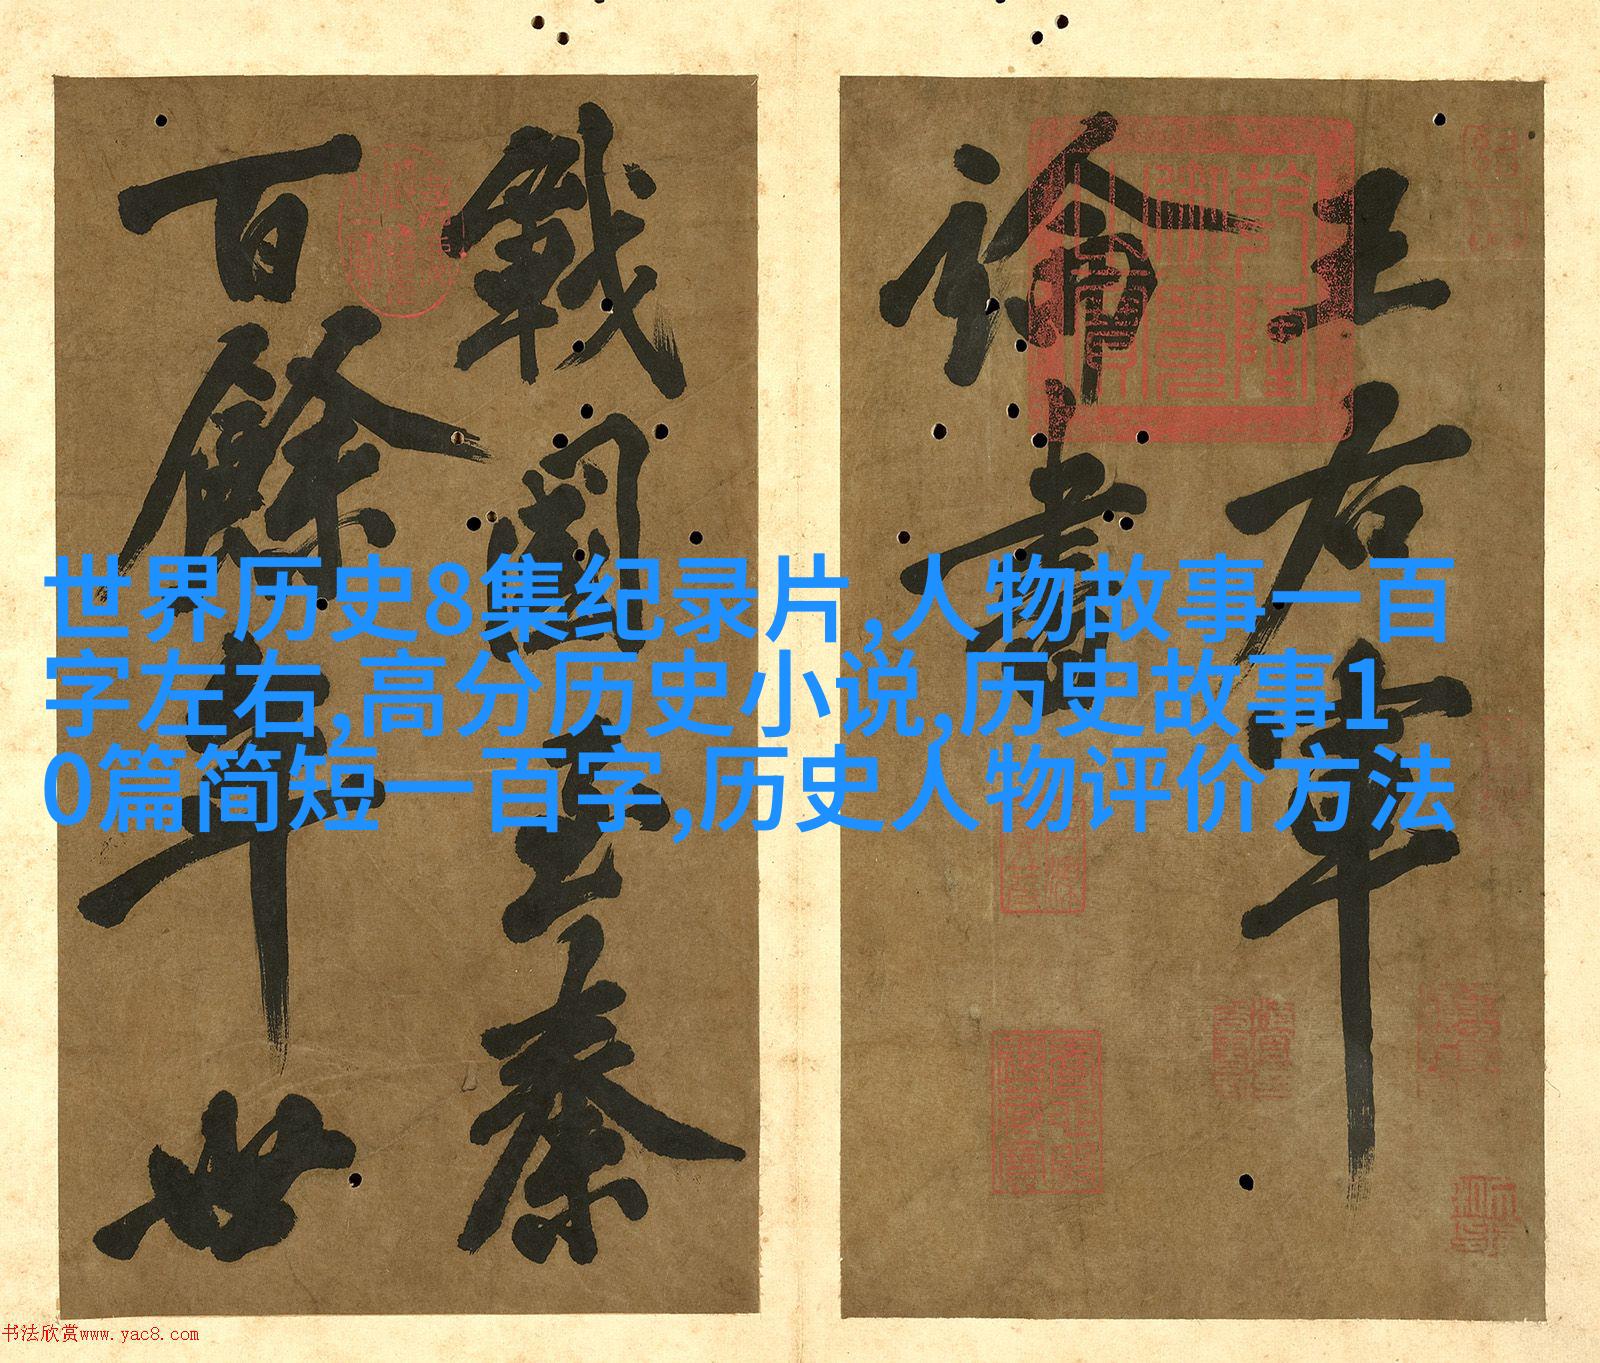 王右軍
論書
戰國至秦
百餘年世
乾隆
御覽
之寶
世界历史8集纪录片,人物故事一百
字左右,高分历史小说,历史故事1
0篇简短一百字,历史人物评价方法
书法欣赏www.yac8.com